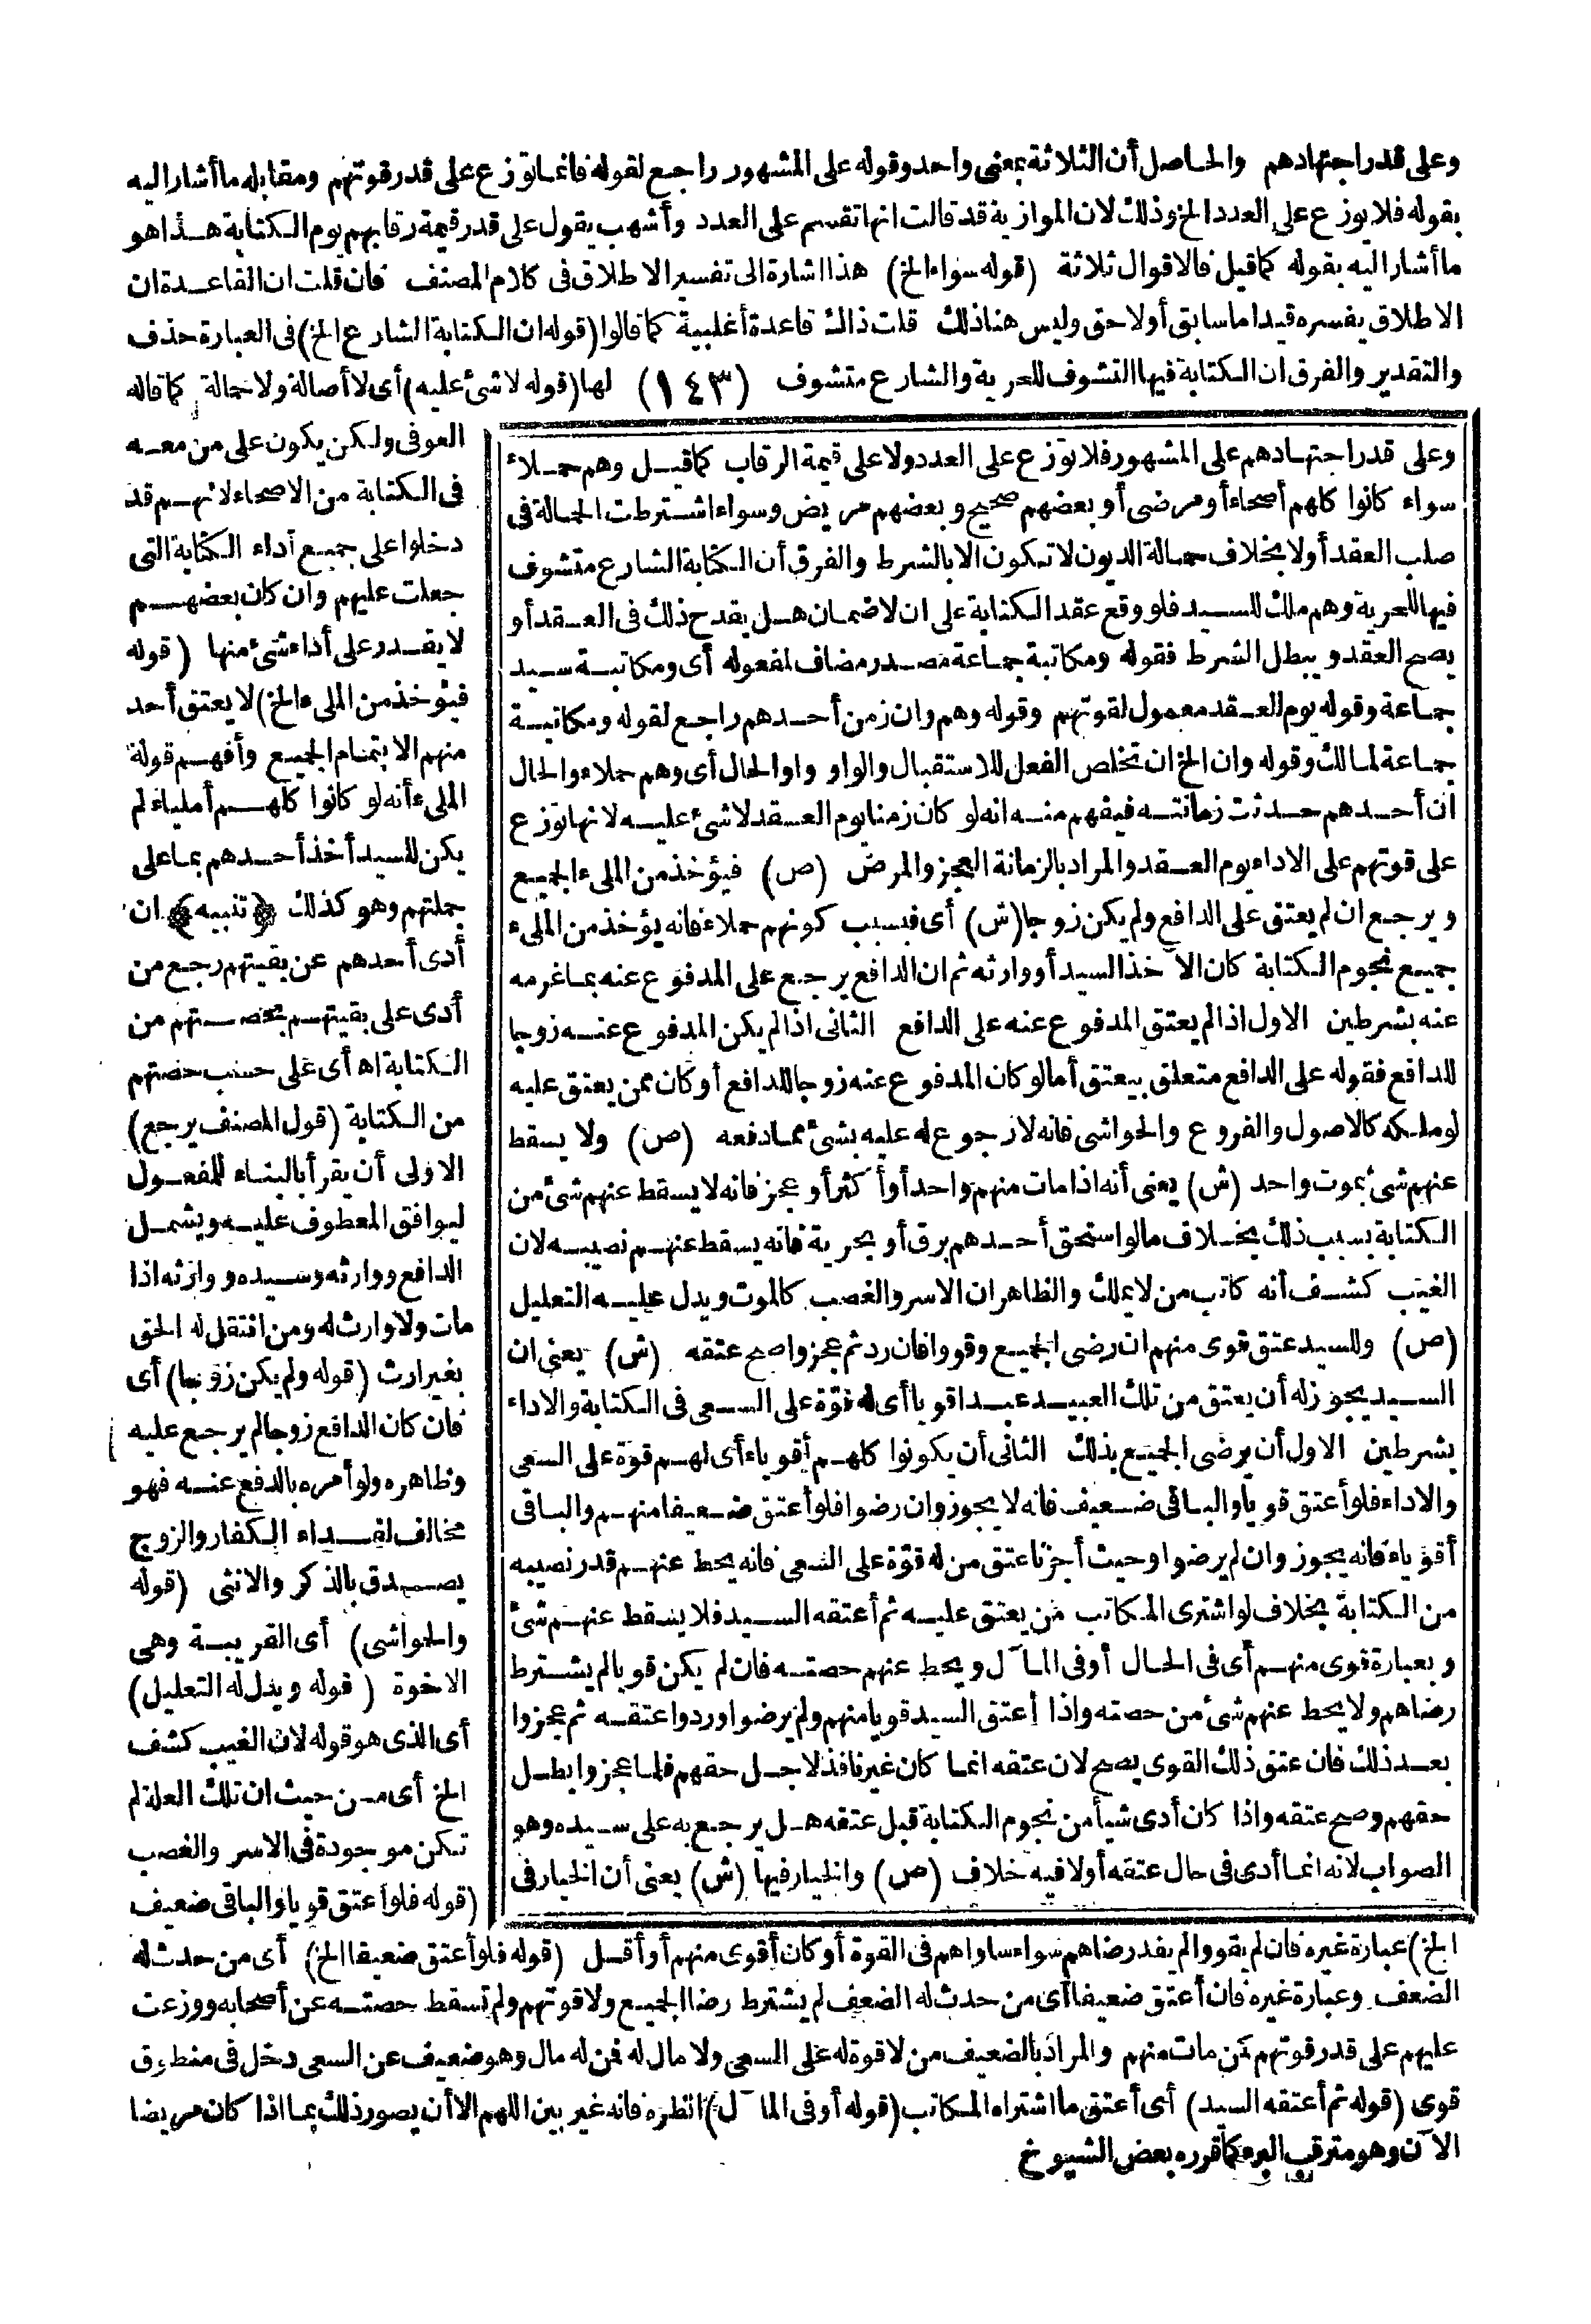 وعلى قدر اجتهادهم والحاصل أن الثلاثة بمعنى واحد وقوله على المشهور راجع لقوله فانما توزع على قدر قوتهم ومقابله ما أشار اليه
بقوله فلا يوزع على العدد الخ وذلك لان الموازية قد قالت انها تقسم على العدد وأشهب يقول على قدر قيمة رقابهم يوم الكتابة هذا هو
ما أشار اليه بقوله كما قيل فالاقوال ثلاثة (قوله سواء الخ) هذا اشارة الى تفسير الاطلاق فى كلام المصنف فان قلت ان القاعدة ان
الاطلاق يفسره قيد اما سابق أولاحق وليس هنا ذلك قلت ذاك قاعدة أغلبية كما قالوا (قوله ان الكتابة الشارع الخ) فى العبارة حذف
والتقدير والفرق ان الكتابة فيها التشوف للحرية والشارع متشوف (١٤٣) لها (قوله لا شئ عليه) أى لا أصالة ولا حمالة كما قاله
وعلى قدر اجتهادهم على المشهور فلا توزع على العدد ولا على قيمة الرقاب كما قيل وهم حملاء
سواء كانوا كلهم أصحاء أو مرضى أو بعضهم صحيح وبعضهم مريض وسواء اشترطت الحمالة فى
صلب العقد أولا بخلاف حمالة الديون لا تكون الا بالشرط والفرق أن الكتابة الشارع متشوف
فيها للحرية وهم ملك للسيد فلو وقع عقد الكتابة على ان لا ضمان هل يقدح ذلك فى العقد أو
يصح العقد ويبطل الشرط فقوله ومكاتبة جماعة مصدر مضاف لمفعوله أى ومكاتبة سيد
جماعة وقوله يوم العقد معمول لقوتهم وقوله وهم وان زمن أحدهم راجع لقوله ومكاتبة
جماعة لمالك وقوله وان الخ ان تخلص الفعل للاستقبال والواو واو الحال أى وهم حملاء والحال
ان أحدهم حدثت زمانته فيفهم منه انه لو كان زمنا يوم العقد لا شئ عليه لانها توزع
على قوتهم على الاداء يوم العقد والمراد بالزمانة العجز والمرض (ص) فيؤخذ من الملىء الجميع
ويرجع ان لم يعتق على الدافع ولم يكن زوجا (ش) أى فبسبب كونهم حملاء فانه يؤخذ من الملىء
جميع نجوم الكتابة كان الآخذ السيد أو وارثه ثم ان الدافع يرجع على المدفوع عنه بما غرمه
عنه بشرطين الاول اذا لم يعتق المدفوع عنه على الدافع الثانى اذا لم يكن المدفوع عنه زوجا
للدافع فقوله على الدافع متعلق بيعتق أما لو كان المدفوع عنه زوجا للدافع أو كان ممن يعتق عليه
لو ملكه كالاصول والفروع والحواشى فانه لا رجوع له عليه بشئ مما دفعه (ص) ولا يسقط
عنهم شئ بموت واحد (ش) يعنى أنه اذا مات منهم واحد أو أكثر أو عجز فانه لا يسقط عنهم شئ من
الكتابة بسبب ذلك بخلاف ما لو استحق أحدهم برق أو بحرية فانه يسقط عنهم نصيبه لان
الغيب كشف أنه كاتب من لا يملك والظاهر ان الاسر والغصب كالموت ويدل عليه التعليل
(ص) وللسيد عتق قوى منهم ان رضى الجميع وقووا فان رد ثم عجزوا صح عتقه (ش) يعنى ان
السيد يجوز له أن يعتق من تلك العبيد عبدا قويا أى له قوة على السعى فى الكتابة والاداء
بشرطين الاول أن يرضى الجميع بذلك الثانى أن يكونوا كلهم أقوياء أى لهم قوة على السعى
والاداء فلو أعتق قويا والباقى ضعيف فانه لا يجوز وان رضوا فلو أعتق ضعيفا منهم والباقى
أقوياء فانه يجوز وان لم يرضوا وحيث أجزنا عتق من له قوة على السعى فانه يحط عنهم قدر نصيبه
من الكتابة بخلاف لو اشترى المكاتب من يعتق عليه ثم أعتقه السيد فلا يسقط عنهم شئ
وبعبارة قوى منهم أى فى الحال أو فى المآل ويحط عنهم حصته فان لم يكن قويا لم يشترط
رضاهم ولا يحط عنهم شئ من حصته واذا أعتق السيد قويا منهم ولم يرضوا وردوا عتقه ثم عجزوا
بعد ذلك فان عتق ذلك القوى يصح لان عتقه انما كان غير نافذ لاجل حقهم فلما عجزوا بطل
حقهم وصح عتقه واذا كان أدى شيأ من نجوم الكتابة قبل عتقه هل يرجع به على سيده وهو
الصواب لانه انما أدى فى حال عتقه أولا فيه خلاف (ص) والخيار فيها (ش) يعنى أن الخيار فى
العوفى ولكن يكون على من معه
فى الكتابة من الاصحاء لانهم قد
دخلوا على جميع أداء الكتابة التى
جعلت عليهم وان كان بعضهم
لا يقدر على أداء شئ منها (قوله
فيؤخذ من الملىء الخ) لا يعتق أحد
منهم الا بتمام الجميع وأفهم قوله
الملىء أنه لو كانوا كلهم أملياء لم
يكن للسيد أخذ أحدهم بما على
جملتهم وهو كذلك ﴿تنبيه﴾ ان
أدى أحدهم عن بقيتهم رجع من
أدى على بقيتهم بحصتهم من
الكتابة اه أى على حسب حصتهم
من الكتابة (قول المصنف يرجع)
الاولى أن يقرأ بالبناء للمفعول
ليوافق المعطوف عليه ويشمل
الدافع ووارثه وسيده ووارثه اذا
مات ولا وارث له ومن انتقل له الحق
بغير ارث (قوله ولم يكن زوجا) أى
فان كان الدافع زوجا لم يرجع عليه
وظاهره ولو أمره بالدفع عنه فهو
مخالف لفداء الكفار والزوج
يصدق بالذكر والانثى (قوله
والحواشى) أى القريبة وهى
الاخوة (قوله ويدل له التعليل)
أى الذى هو قوله لان الغيب كشف
الخ أى من حيث ان تلك العلة لم
تكن موجودة فى الاسر والغصب
(قوله فلو أعتق قويا والباقى ضعيف
الخ) عبارة غيره فان لم يقووا لم يفد رضاهم سواء ساواهم فى القوة أو كان أقوى منهم أو أقل (قوله فلو أعتق ضعيفا الخ) أى من حدث له
الضعف وعبارة غيره فان أعتق ضعيفا أى من حدث له الضعف لم يشترط رضا الجميع ولا قوتهم ولم تسقط حصته عن أصحابه ووزعت
عليهم على قدر قوتهم كمن مات منهم والمراد بالضعيف من لا قوة له على السعى ولا مال له فمن له مال وهو ضعيف عن السعى دخل فى منطوق
قوى (قوله ثم أعتقه السيد) أى أعتق ما اشتراه المكاتب (قوله أو فى المآل) انظره فانه غير بين اللهم الا أن يصور ذلك بما اذا كان مريضا
الآن وهو مترقب البرء كما قرره بعض الشيوخ